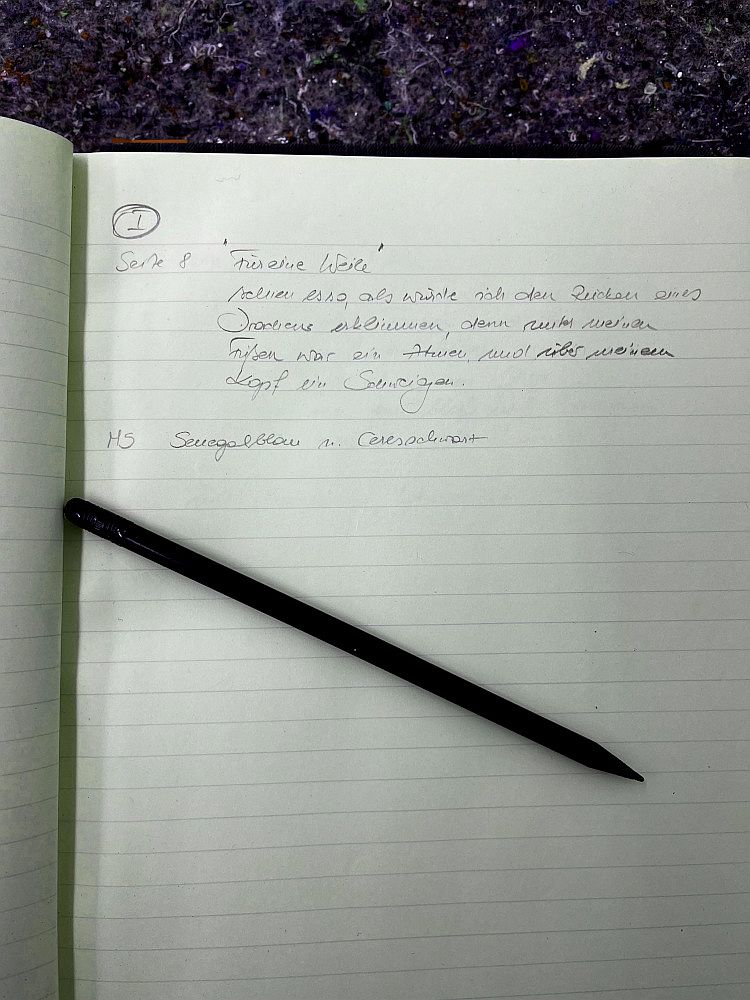 I
Seite 8 "Für eine Weile"
schien es so, als würde ich den Rücken eines
Drachens erklimmen, denn unter meinen
Füßen war ein Atmen, und über meinem
Kopf ein Schweigen.
MS Senegalblau u. Ceresschwarz